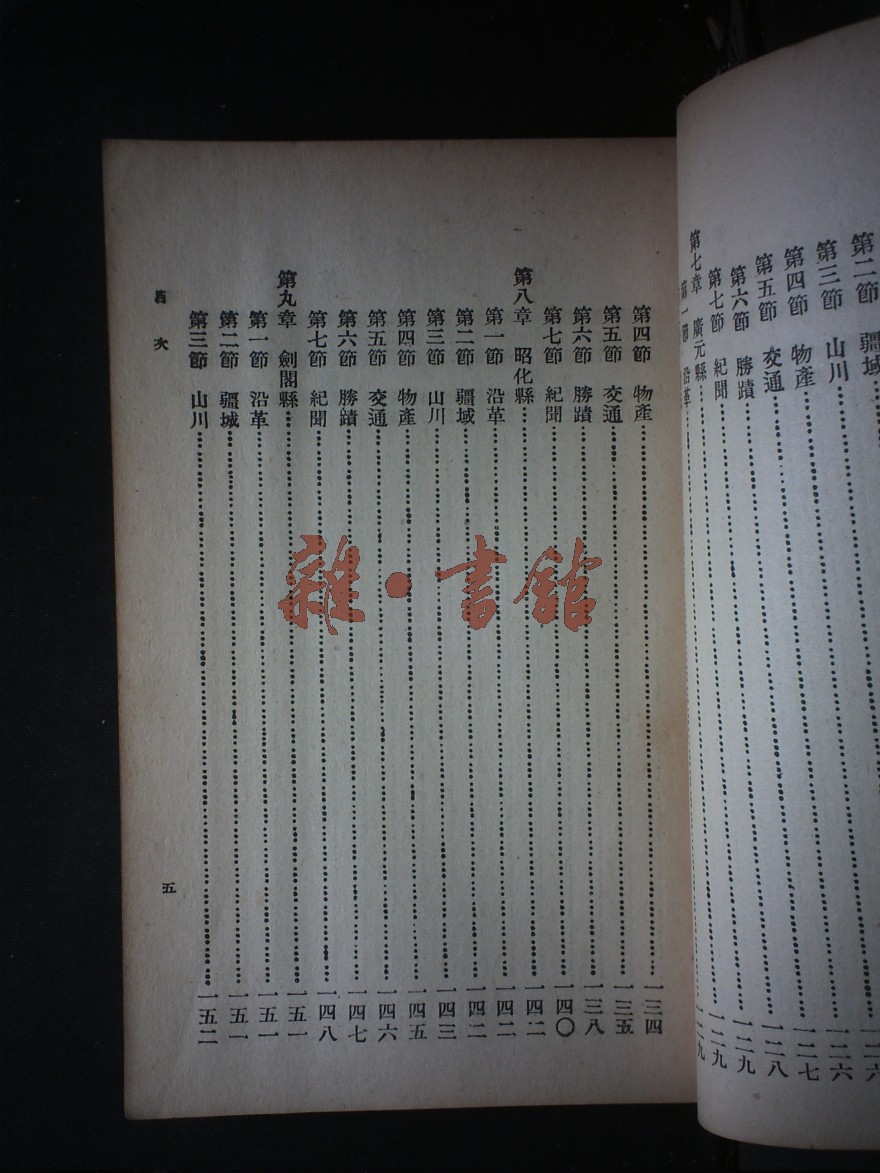 第二節 疆域 一二六
第三節 山川 一二六
第四節 物產 一二七
第五節 交通 一二八
第六節 勝蹟 一二九
第七節 紀聞 一二九
第七章 廣元縣 一二九
第一節 沿革
第四節 物產 一三四
第五節 交通 一三五
第六節 勝蹟 一三八
第七節 紀聞 一四〇
第八章 昭化縣 一四二
第一節 沿革 一四二
第二節 疆域 一四二
第三節 山川 一四三
第四節 物產 一四五
第五節 交通 一四六
第六節 勝蹟 一四七
第七節 紀聞 一四八
第九章 劍閣縣 一五一
第一節 沿革 一五一
第二節 疆城 一五一
第三節 山川 一五二
目次
五
雜·書館